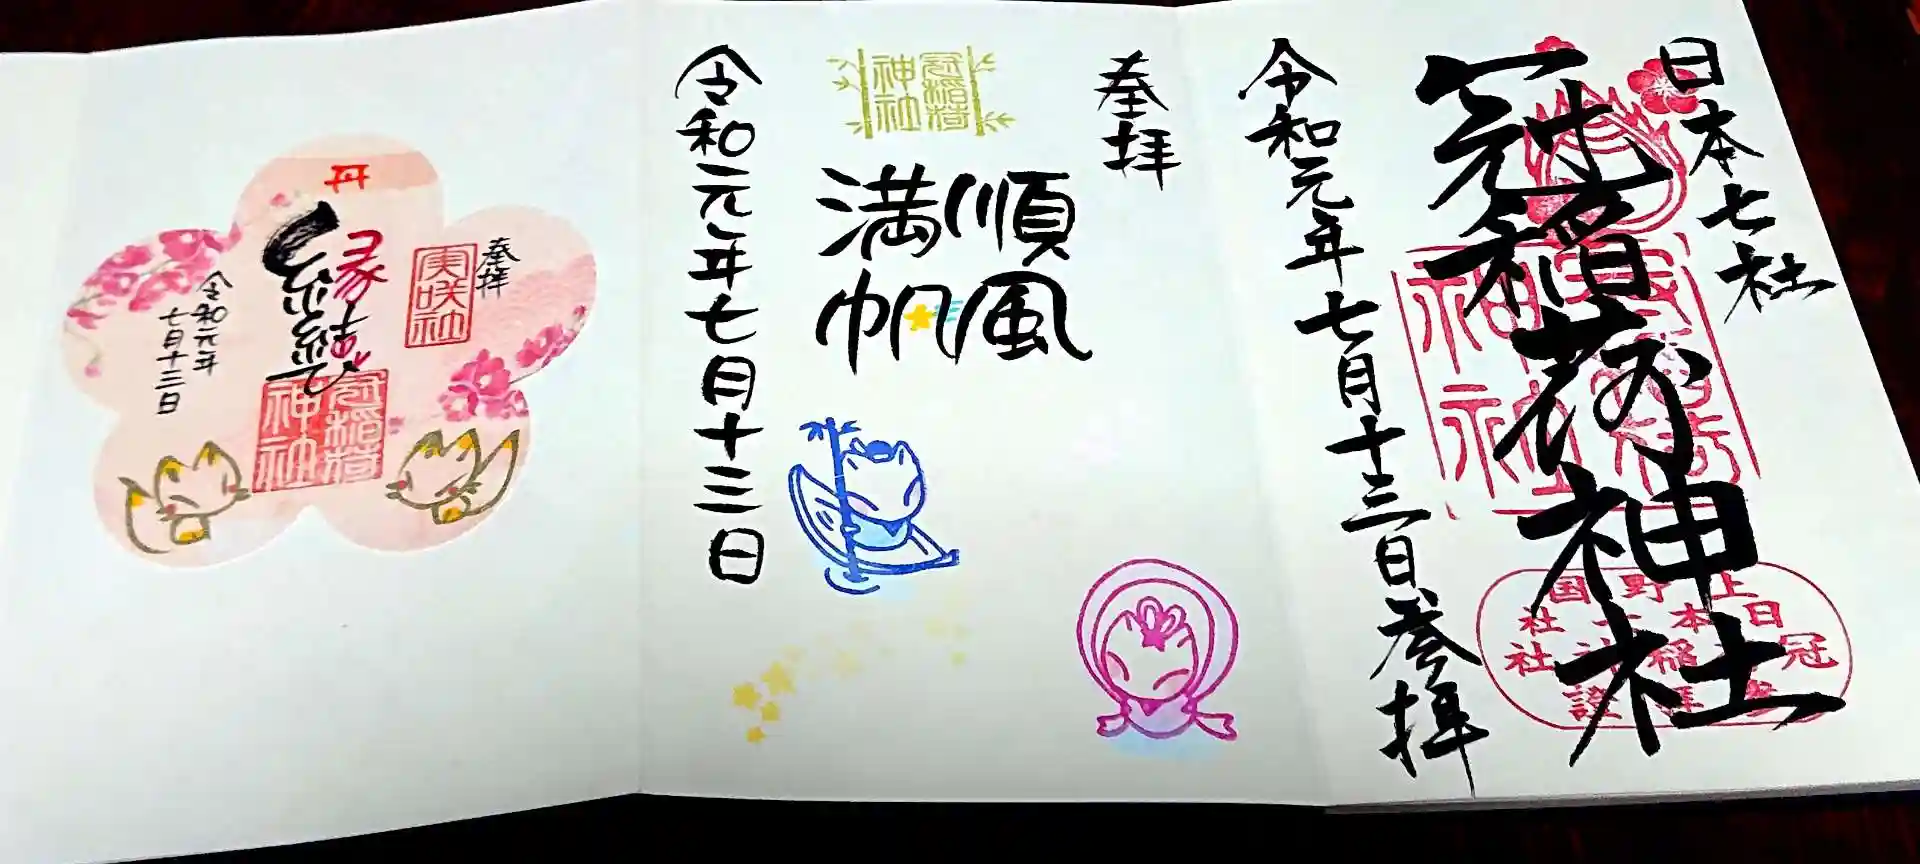 日本七社
冠稲荷神社
令和元年七月十三日参拝
上野国
日本七社
冠稲荷神社
参拝證
奉拝
冠稲荷
神社
順風
満帆
令和元年七月十三日
奉拝
実咲社
縁結び
冠稲荷
神社
令和元年
七月十三日